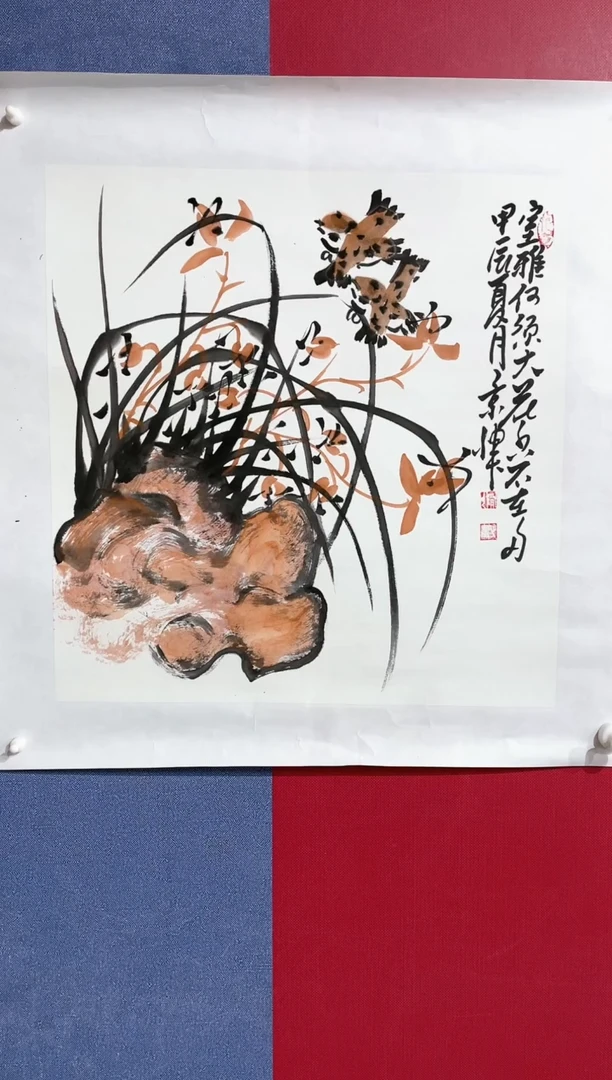 室雅何须大花香不在多
甲辰夏月景惮